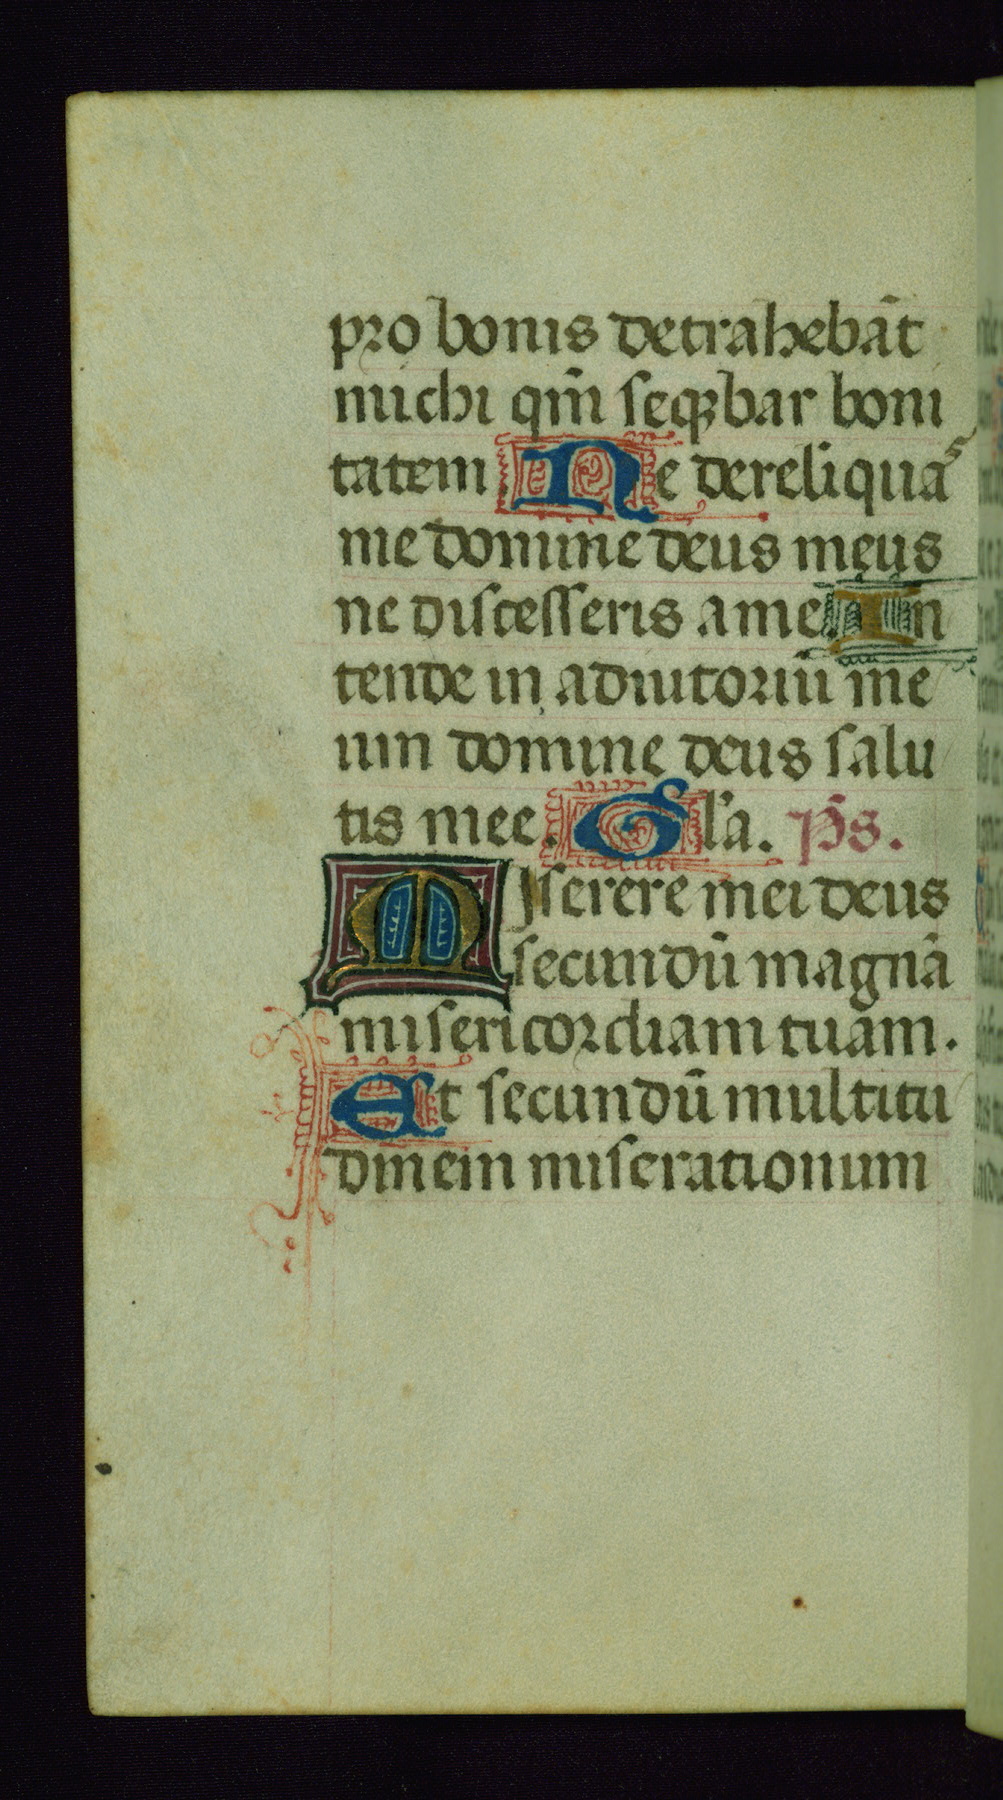 pro bonis detrahebāt
michi qm̄ seq̄bar boni
tatem Ne dereliquas
me domine deus meus
ne discesseris a me. In
tende in adiutoriū me
um domine deus salu
tis mee. Gl'a. p̄s.
MIserere mei deus
secundū magnā
misericordiam tuam.
Et secundū multitu
dinem miserationum